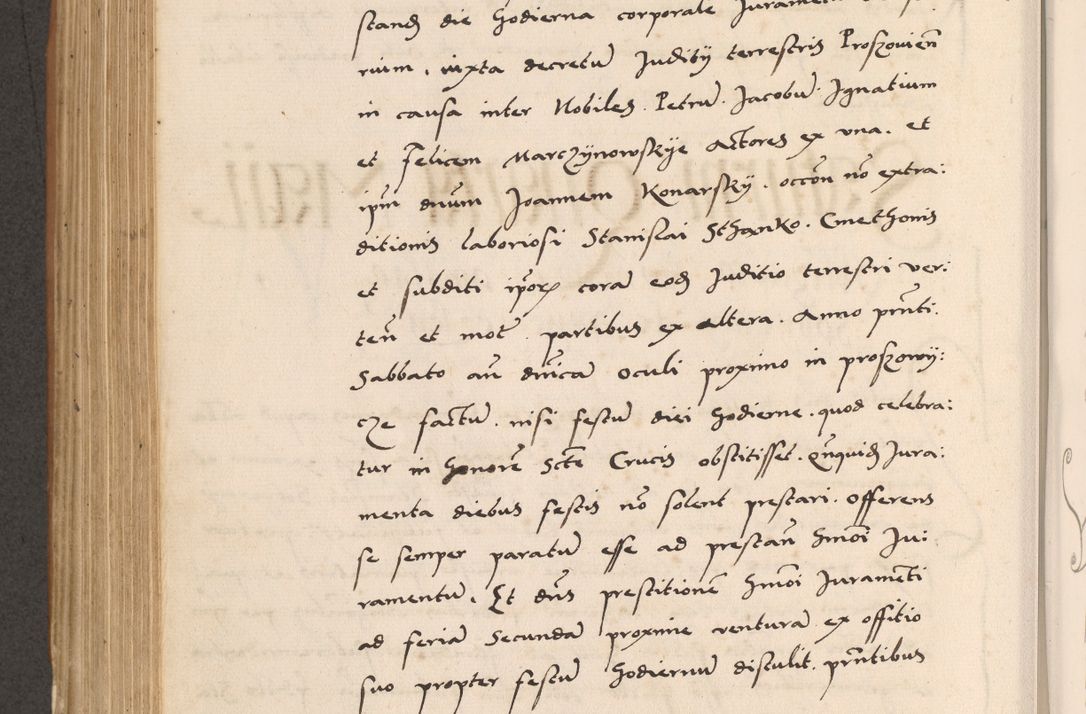 stand die hodierna corporale Jurament
rium . iuxta decretu Juditij terrestris Proszovien
in causa inter Nobiles . Petru . Jacobu . Ignatium
et Felicem Marczynowskye Actores ex una . et
ipm dnum Joannem Konarsky . occon no extra:
ditionis laboriosi Stanislai Sthanko . Cmethonis
et subditi ipor cora eod Juditio terrestri ver:
ten et mot . partibus ex altera . Anno pnti .
Sabbato an dnica Oculi proximo in proszowy:
cze factu . nisi festu diei hodierne . quod celebra:
tur in honore Scte Crucis obstitisset . Qnquid Jura:
menta diebus festis no solent prestari . Offerens
se semper paratu esse ad prestan hmoi Ju:
ramentu . Et dns prestitione hmoi Juramenti
ad feria Secunda proxime ventura ex offitio
suo propter festu hodiernu distulit . pntibus